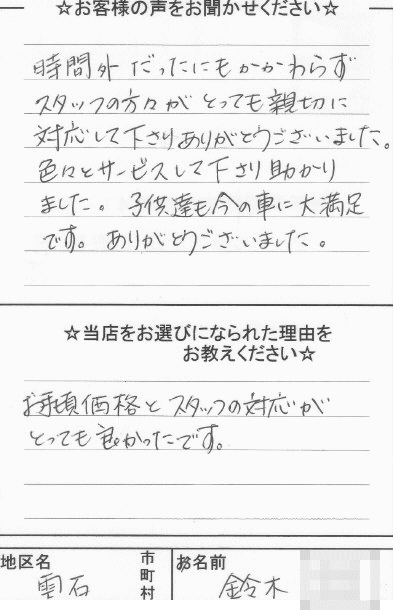 ☆お客様の声をお聞かせください☆
時間外だったにもかかわらず
スタッフの方々がとっても親切に
対応して下さりありがとうございました。
色々とサービスして下さり助かり
ました。子供達も今の車に大満足
です。ありがとうございました。
☆当店をお選びになられた理由を
お教えください☆
お手頃価格とスタッフの対応が
とっても良かったです。
地区名 雲石 市町村 お名前 鈴木